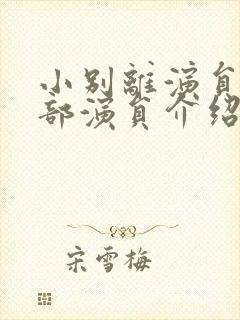 小别離演員
部演員介绍
宋雪梅